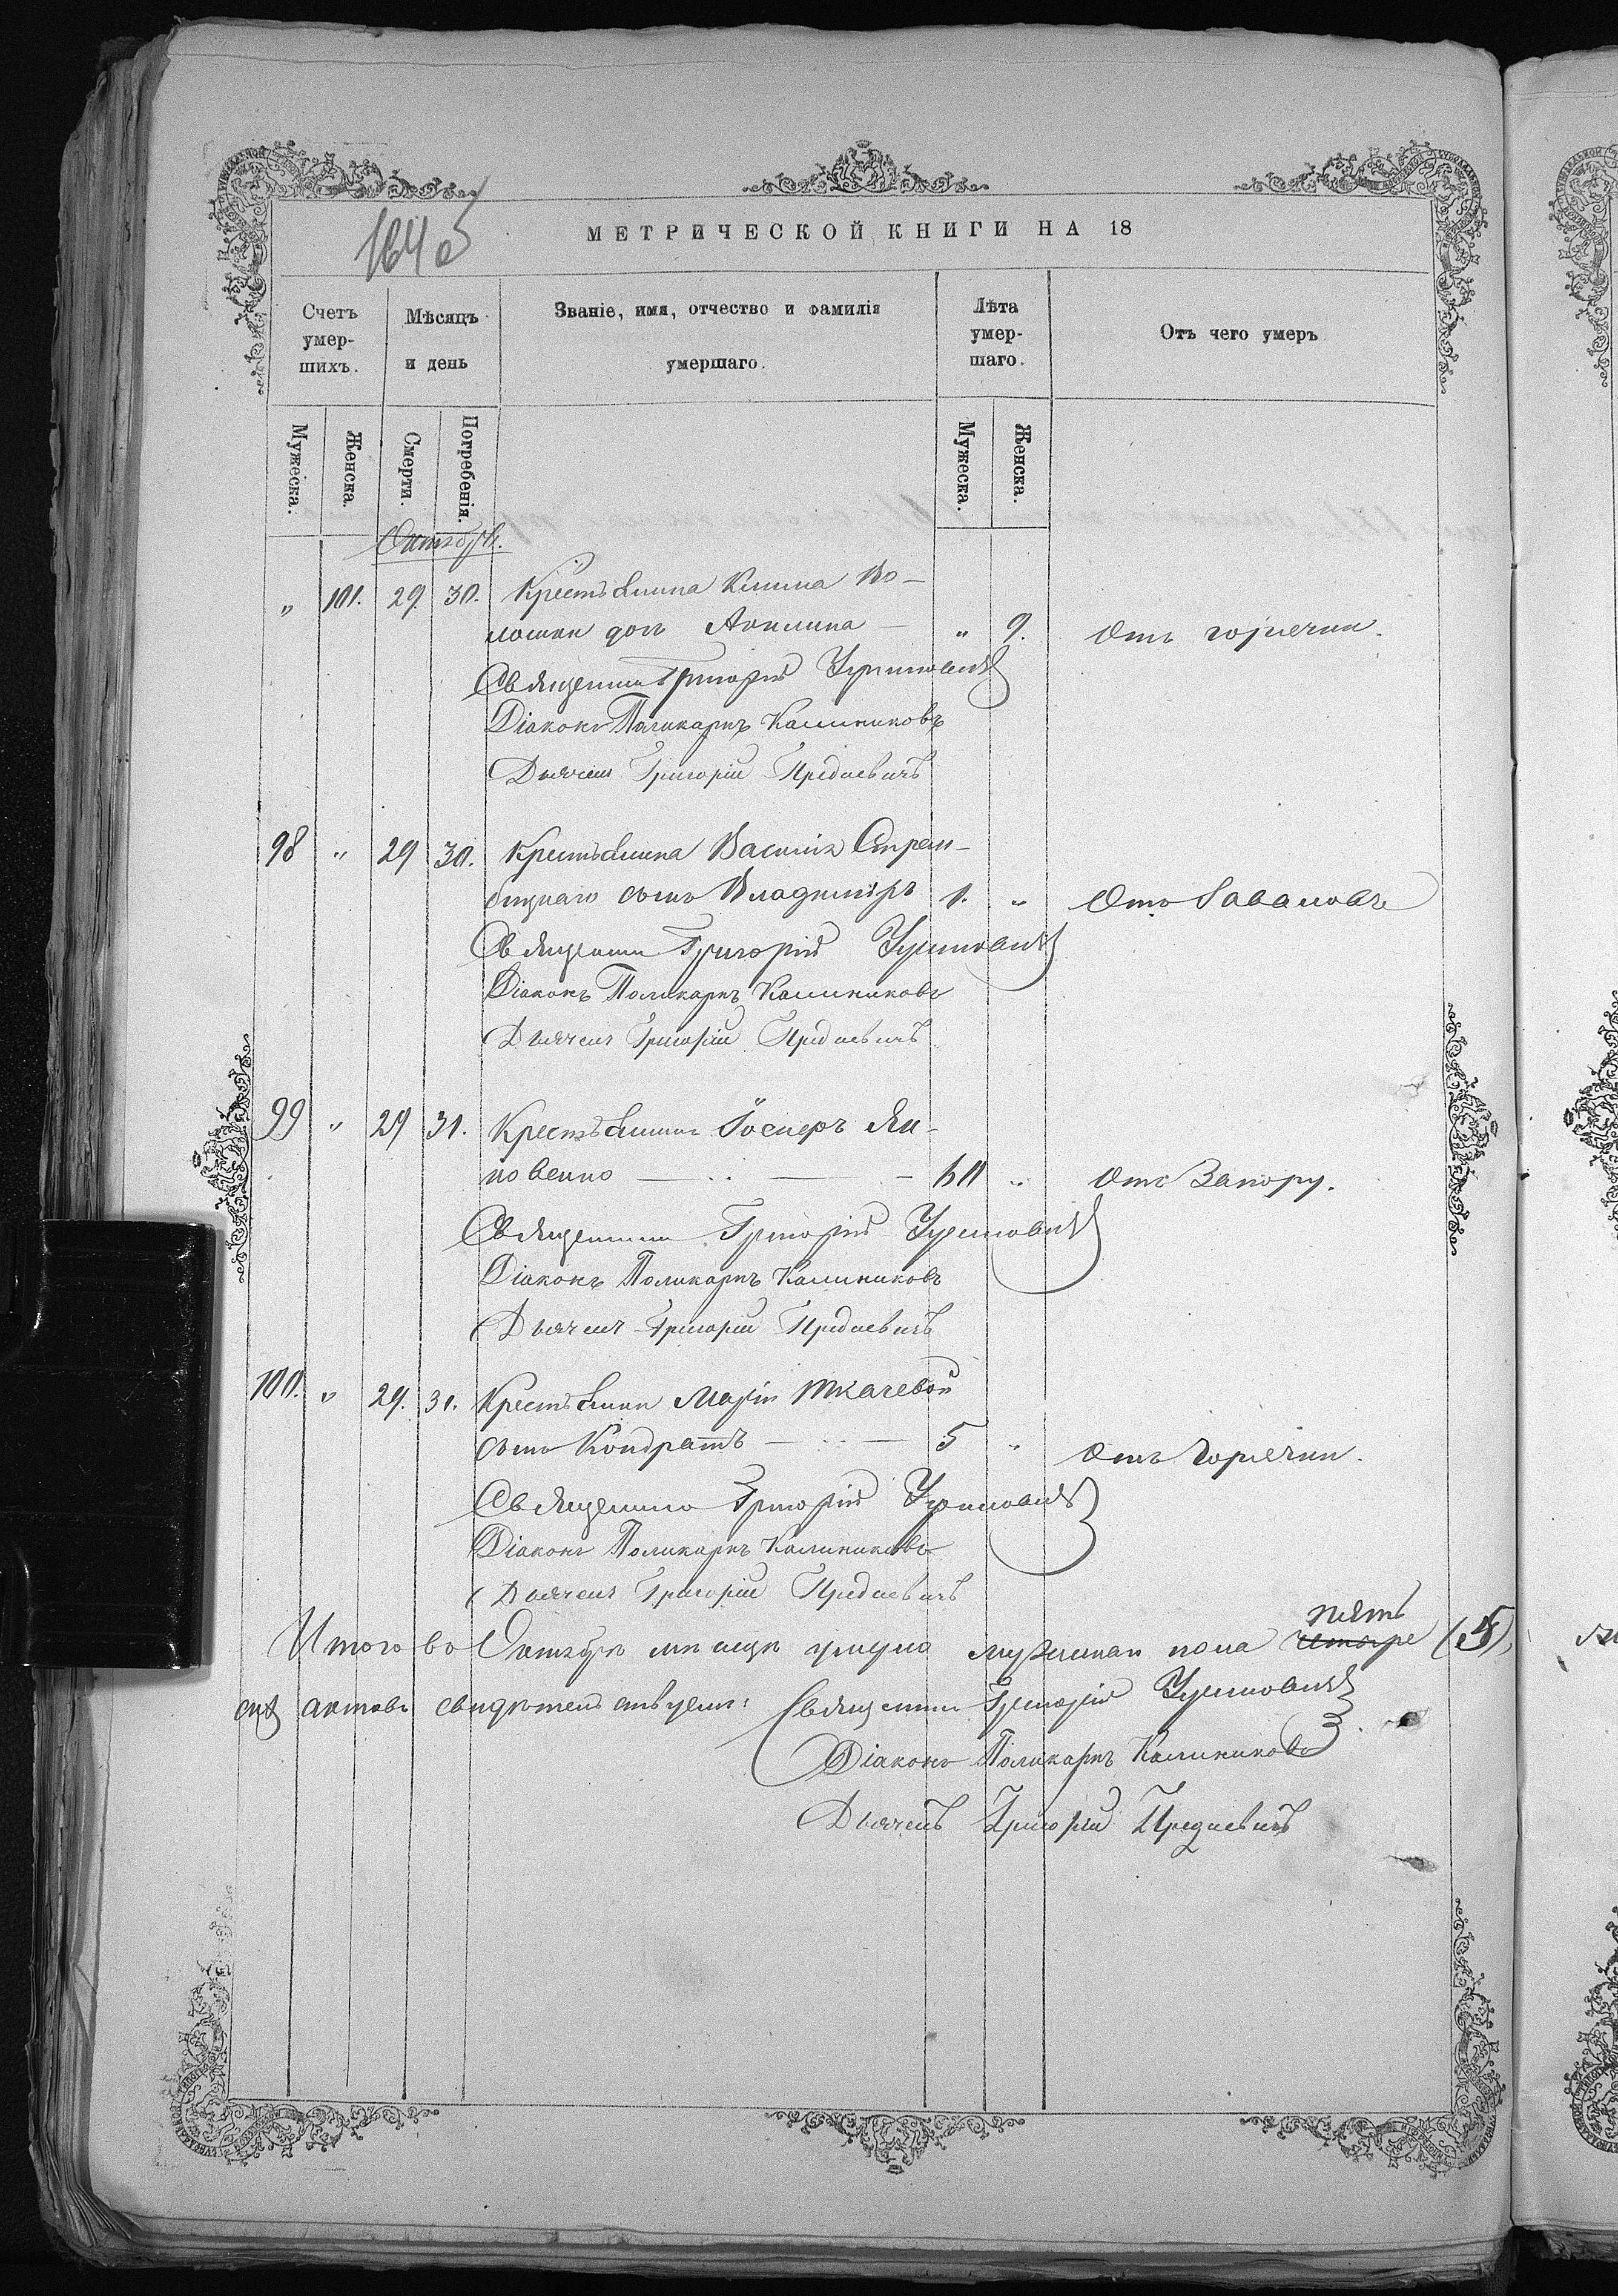 164 об
МЕТРИЧЕСКОЙ КНИГИ НА 18
Счетъ умер-шихъ.
Мѣсяцъ и день
Званіе, имя, отчество и фамилія умершаго.
Лѣта умер-шаго.
Отъ чего умеръ
Мужеска. Женска. Смерти. Погребенія. Мужеска. Женска.
Октябрь.
" 101. 29. 30. Крестьянина Клима Во-
лошки дочь Акилина — " 9. Отъ горячки.
Священникъ Григорій
Діаконъ Поликарпъ Калиниковъ
Дьячекъ Григорій
98 " 29 30. Крестьянина Василія Стрем-
сынъ Владиміръ 1. " Отъ
Священникъ Григорій
Діаконъ Поликарпъ Калиниковъ
Дьячекъ Григорій
99 " 29 31. Крестьянинъ Іосифъ Яки-
повенко — 60 " Отъ Запору.
Священникъ Григорій
Діаконъ Поликарпъ Калиниковъ
Дьячекъ Григорій
100. " 29. 31. Крестьянки Маріи Ткачевой
сынъ Кондратъ — 5 " Отъ Горячки.
Священникъ Григорій
Діаконъ Поликарпъ Калиниковъ
Дьячекъ Григорій
пять
Итого во Октябрѣ мѣсяцѣ умерло мужескаго пола четыре (5),
актовъ свидѣтельствуемъ: Священникъ Григорій
Діаконъ Поликарпъ Калиниковъ
Дьячекъ Григорій